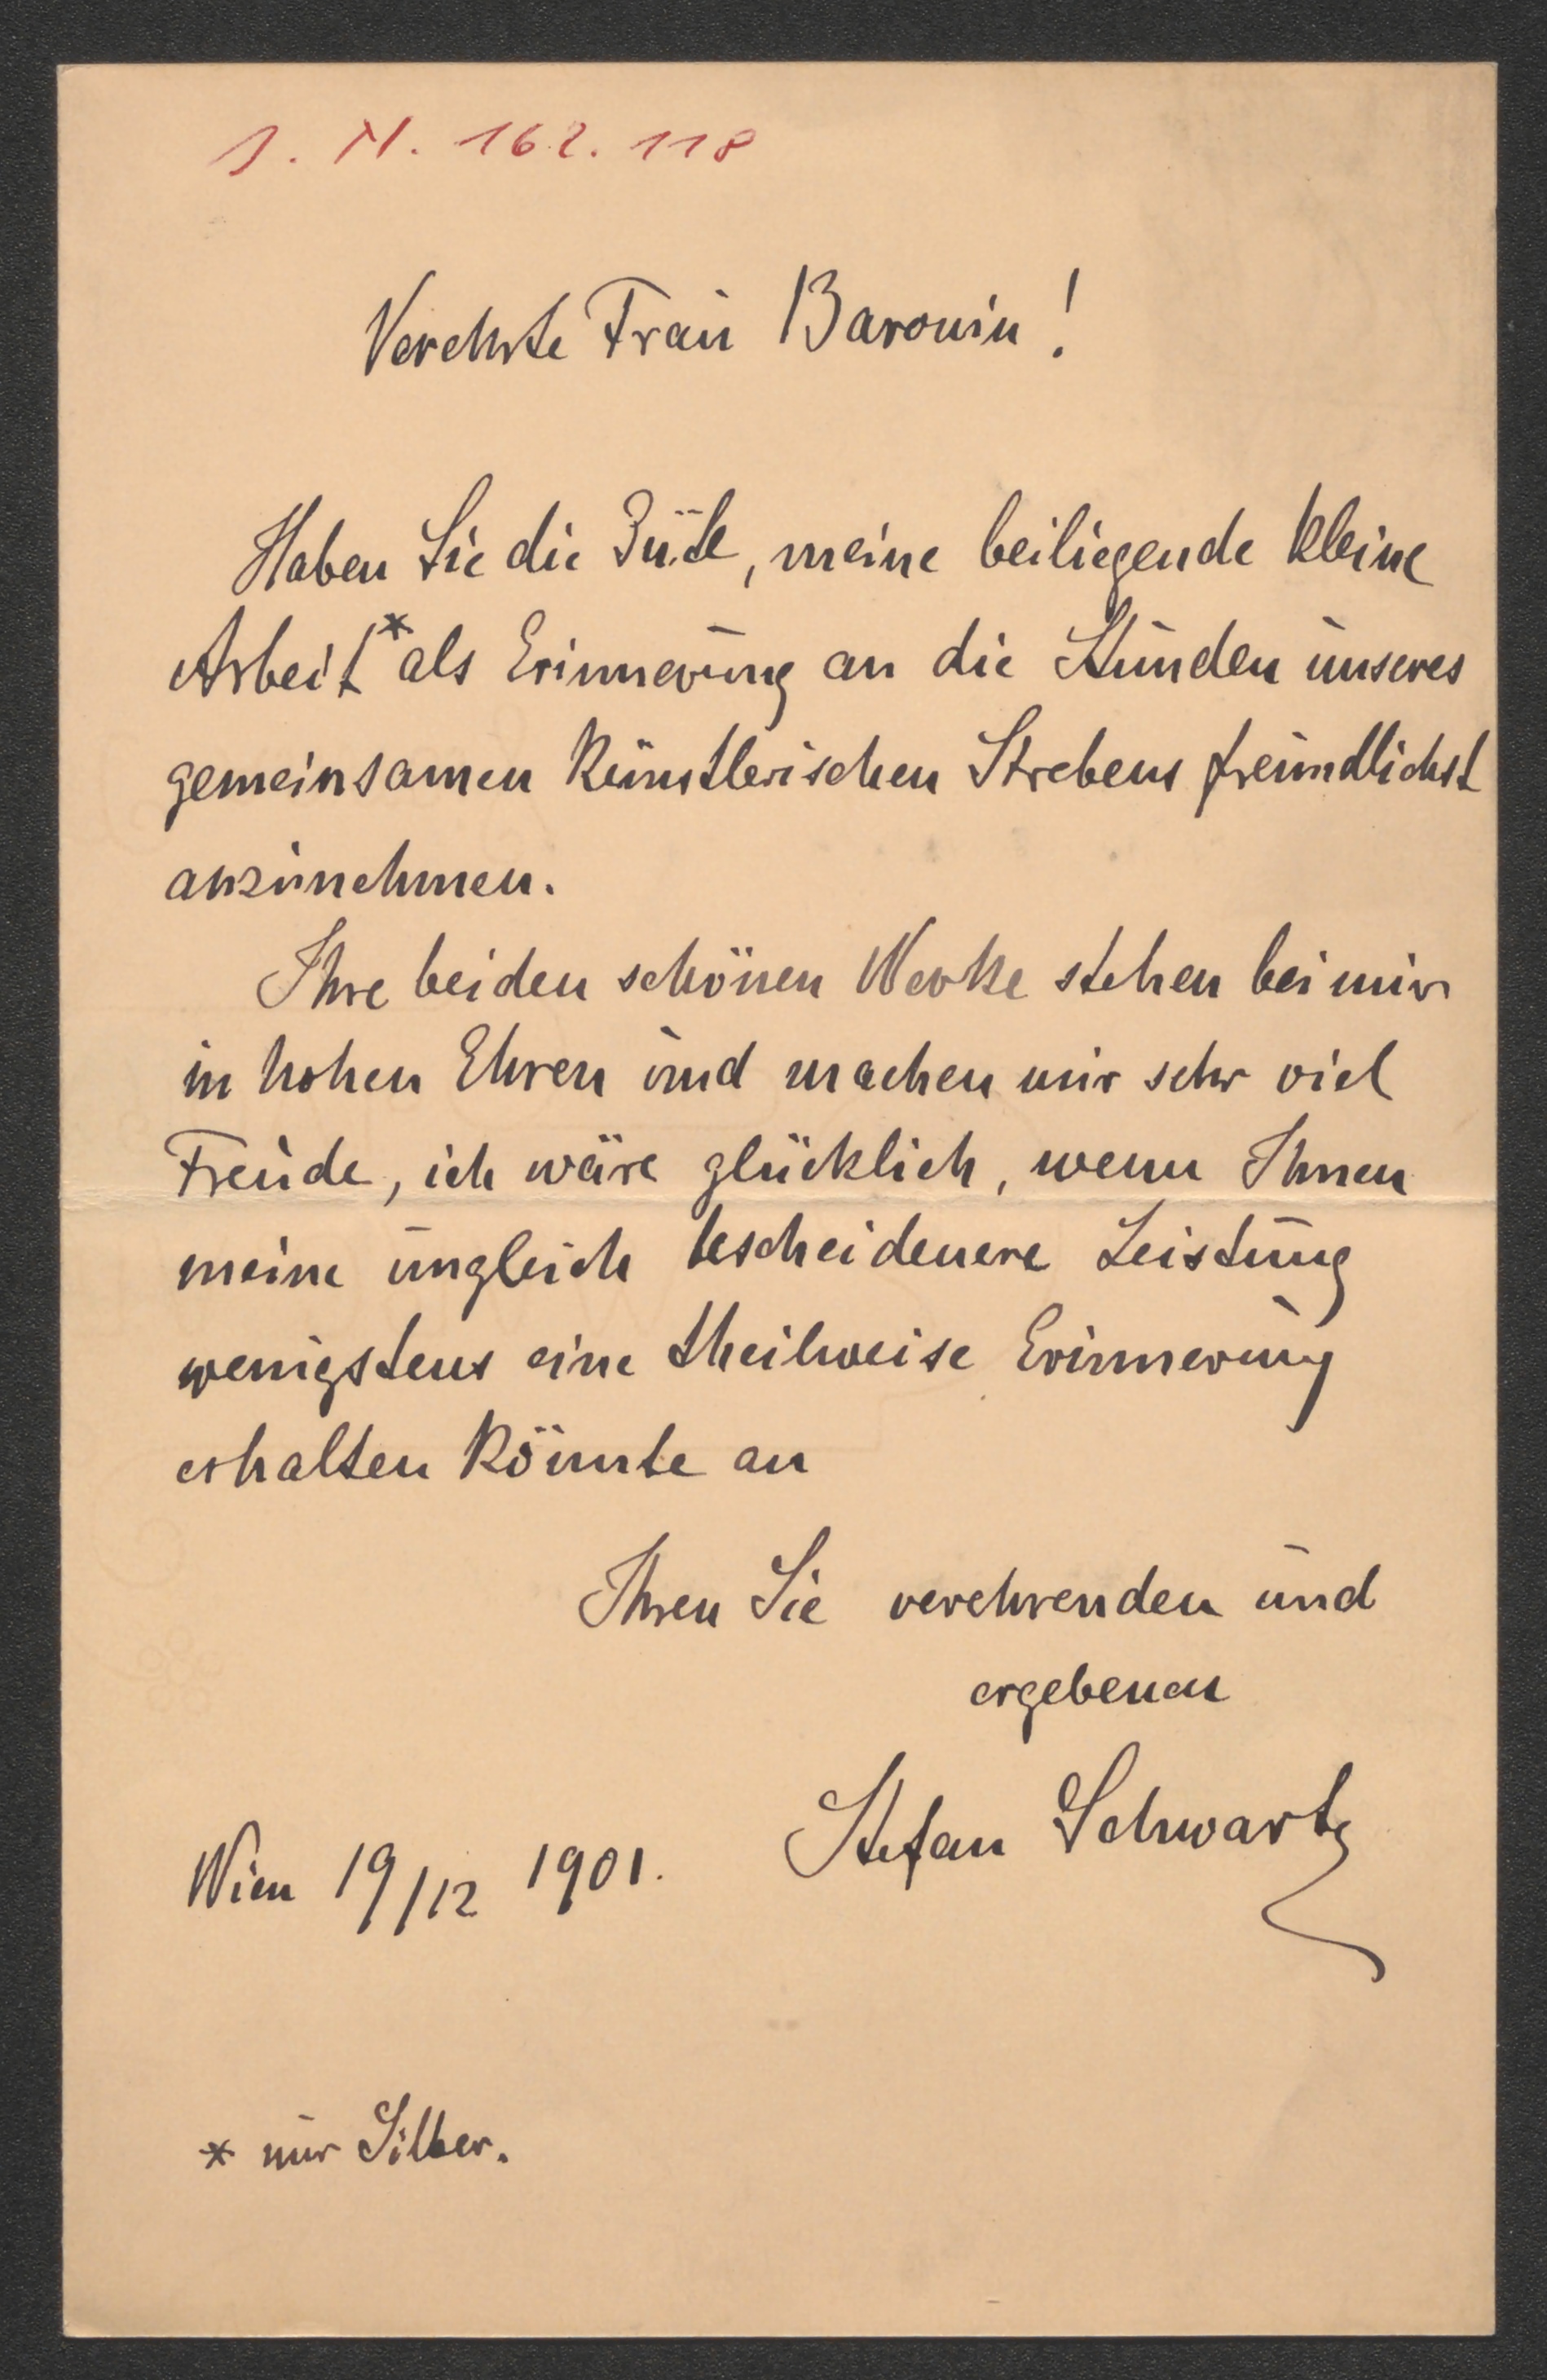 J. N. 162.118
Verehrte Frau Baronin!
Haben Sie die Güte, meine beiliegende kleine
Arbeit* als Erinnerung an die Stunden unseres
gemeinsamen künstlerischen Strebens freundlichst
anzunehmen.
Ihre beiden schönen Werke stehen bei mir
in hohen Ehren und machen mir sehr viel
Freude, ich wäre glücklich, wenn Ihnen
meine ungleich bescheidenere Leistung
wenigstens eine theilweise Erinnerung
erhalten könnte an
Ihren Sie verehrenden und
ergebenen
Stefan Schwartz
Wien 19/12 1901.
* nur Silber.